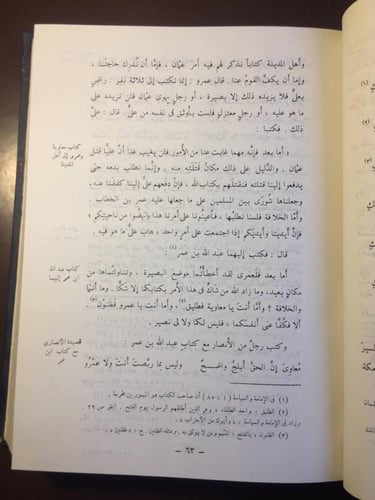 وأهل المدينة كتاباً نذكر لهم فيه أمرَ عثمان ، فإمّا أن نُدرِك حاجتنا ،
وإما أن يكفَّ القومُ عنا . قال عمرو : إنما نكتب إلى ثلاثة نفر : راضٍ
بعليٍّ فلا يزيده ذلك إلا بصيرة ، أو رجلٍ يهوى عثمان فلن نزيده على
ما هو عليه ، أو رجلٍ معتزلٍ فلستَ بأوثق في نفسه من علىّ . قال : علىَّ
ذلك . فكتبا :
« أما بعد فإنّه مهما غابت عنا من الأمور فلن يغيب عنا أنّ عليًّا قتل
عثمان . والدّليل على ذلك مكانُ قَتَلَتِه منه . وإنّما نطلب بدمه حتى
يدفعوا إلينا قتلته فنقتلَهم بكتاب الله ، فإنْ دفعهم علىٌّ إلينا كففنا عنه ،
وجعلناها شورى بين المسلمين على ما جعلها عليه عمر بن الخطاب .
وأمّا الخلافة فلسنا نطلبها ، فأعينونا على أمرنا هذا وانهضوا من ناحيتكم ،
فإنَّ أيديَنا وأيديَكم إذا اجتمعت على أمرٍ واحدٍ، هاب علىٌّ ما هو فيه .
كتاب معاوية
وعمرو إلى أهل
المدينة
قال : فكتب إليهما عبد الله بن عمر (١) :
أما بعد فلَعمرى لقد أخطأتُما موضعَ البصيرة ، وتناولتُماها من
مكانٍ بعيد، وما زاد الله من شاكٍّ فى هذا الأمر بكتابكما إلا شكًّا . وما أنتما
والخلافةَ ؟ وأمّا أنت يا معاوية فطليق (٢)، وأما أنت يا عمرو فظَنُون (٣) .
ألا فكُفَّا عنّى أنفسَكما ، فليس لكما ولا لى نصير .
كتاب عبد الله
ابن عمر إليهما
وكتب رجلٌ من الأنصار مع كتاب عبد الله بن عمر :
معاوىَ إنَّ الحقَّ أبلجُ واضحٌ وليس بما ربَّصتَ أنتَ ولا عمْرُو
قصيدة الأنصارى
مع كتاب ابن
عمر
(١) فى الإمامة والسياسة ( ١ : ٨٥ ) أن صاحب الكتاب هو المسور بن مخرمة .
(٢) الطليق : واحد الطلقاء ، وهم الذين أطلقهم الرسول يوم الفتح . انظر ص ٢٩ .
(٣) الظنون ، بالفتح : المتهم
— ٦٣ —